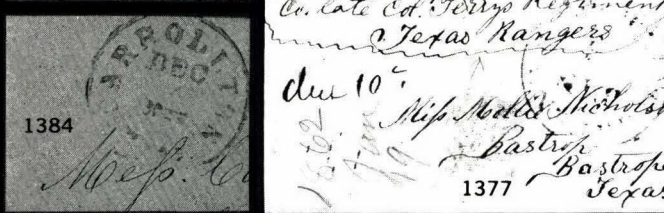 CARROLLTON
DEC
1384
Mess.
Co. late Col. Terrys Regiment
Texas Rangers
due 10c
Miss Mollie Nicholson
Bastrop
Bastrop
1377
Texas
1862